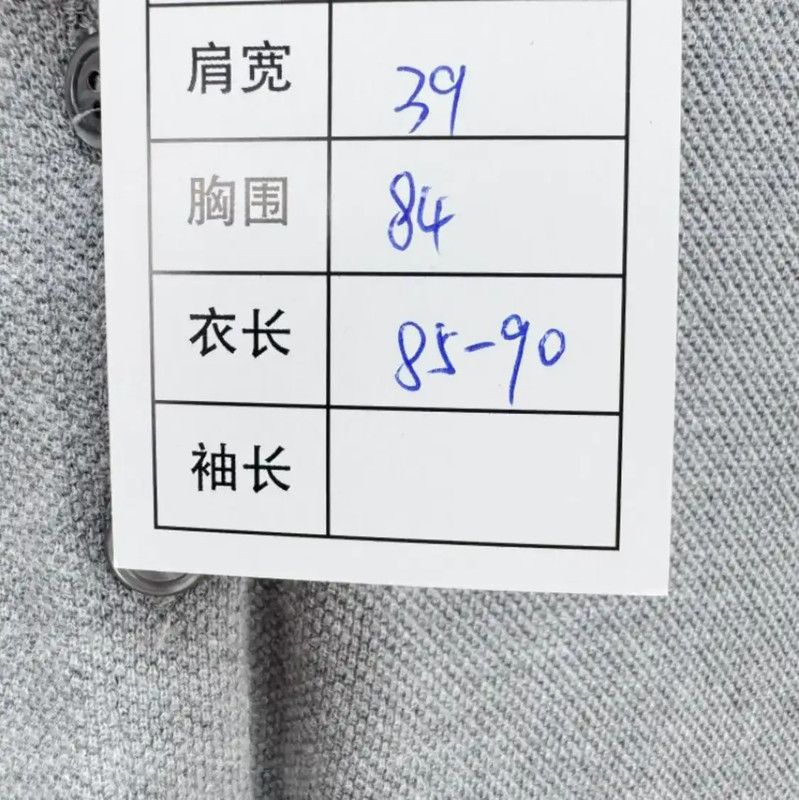 肩宽 39
胸围 84
衣长 85-90
袖长